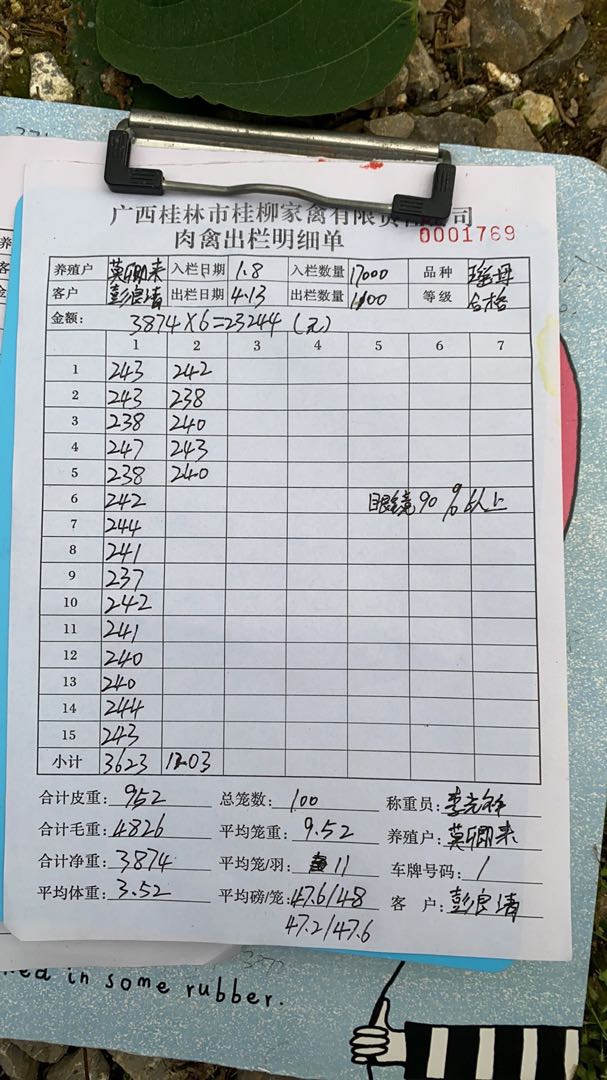 广西桂林市桂柳家禽有限责任公司
肉禽出栏明细单
0001769
养殖户 莫卿来 入栏日期 1.8 入栏数量 17000 品种 瑶母
客户 彭良清 出栏日期 4.13 出栏数量 1100 等级 合格
金额: 3874×6=23244(元)
1 2 3 4 5 6 7
1 243 242
2 243 238
3 238 240
4 247 243
5 238 240
6 242 眼镜90%以上
7 244
8 241
9 237
10 242
11 241
12 240
13 240
14 244
15 243
小计 3623 1203
合计皮重: 952 总笼数: 100 称重员:
合计毛重: 4826 平均笼重: 9.52 养殖户: 莫卿来
合计净重: 3874 平均笼/羽: 11 车牌号码: /
平均体重: 3.52 平均磅/笼: 47.6/48 客户: 彭良清
47.2/47.6
in some rubber.